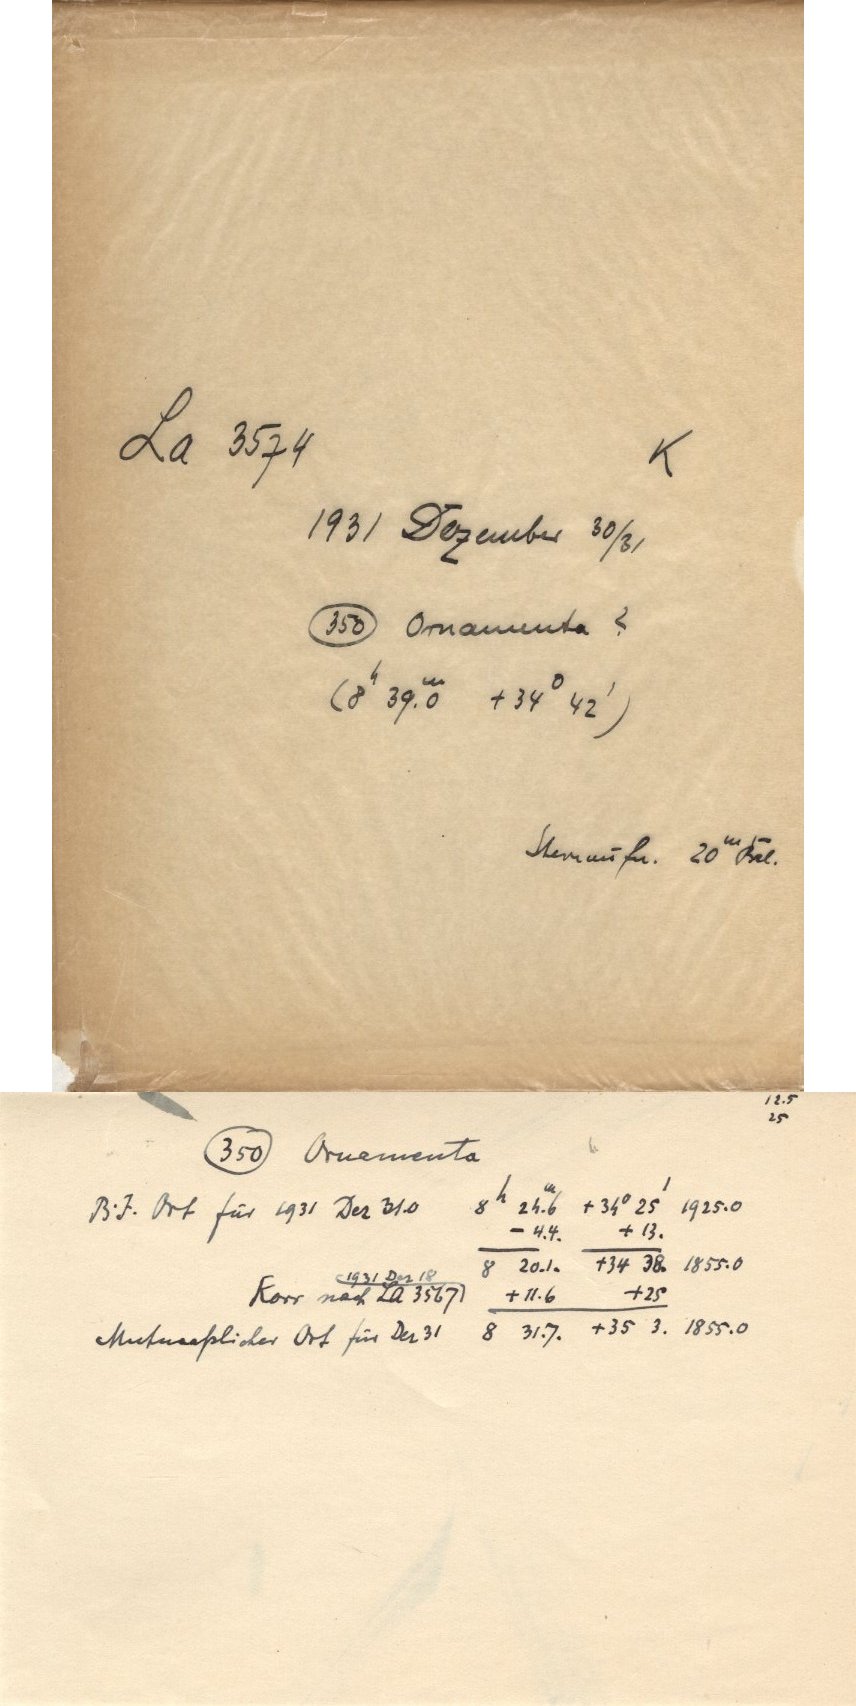 La 3574 K
1931 Dezember 30/31
350 Ornamenta ?
(8h 39.m0 +34° 42')
Sternaufn. 20m Bel.
12.5
25
350 Ornamenta
B.J. Ort für 1931 Dez 31.0 8h 24.m6 +34° 25' 1925.0
- 4.4. + 13.
8 20.1. +34 38. 1855.0
1931 Dez 18
Korr nach La 3567) +11.6 +25
Mutmasslicher Ort für Dez 31 8 31.7. +35 3. 1855.0